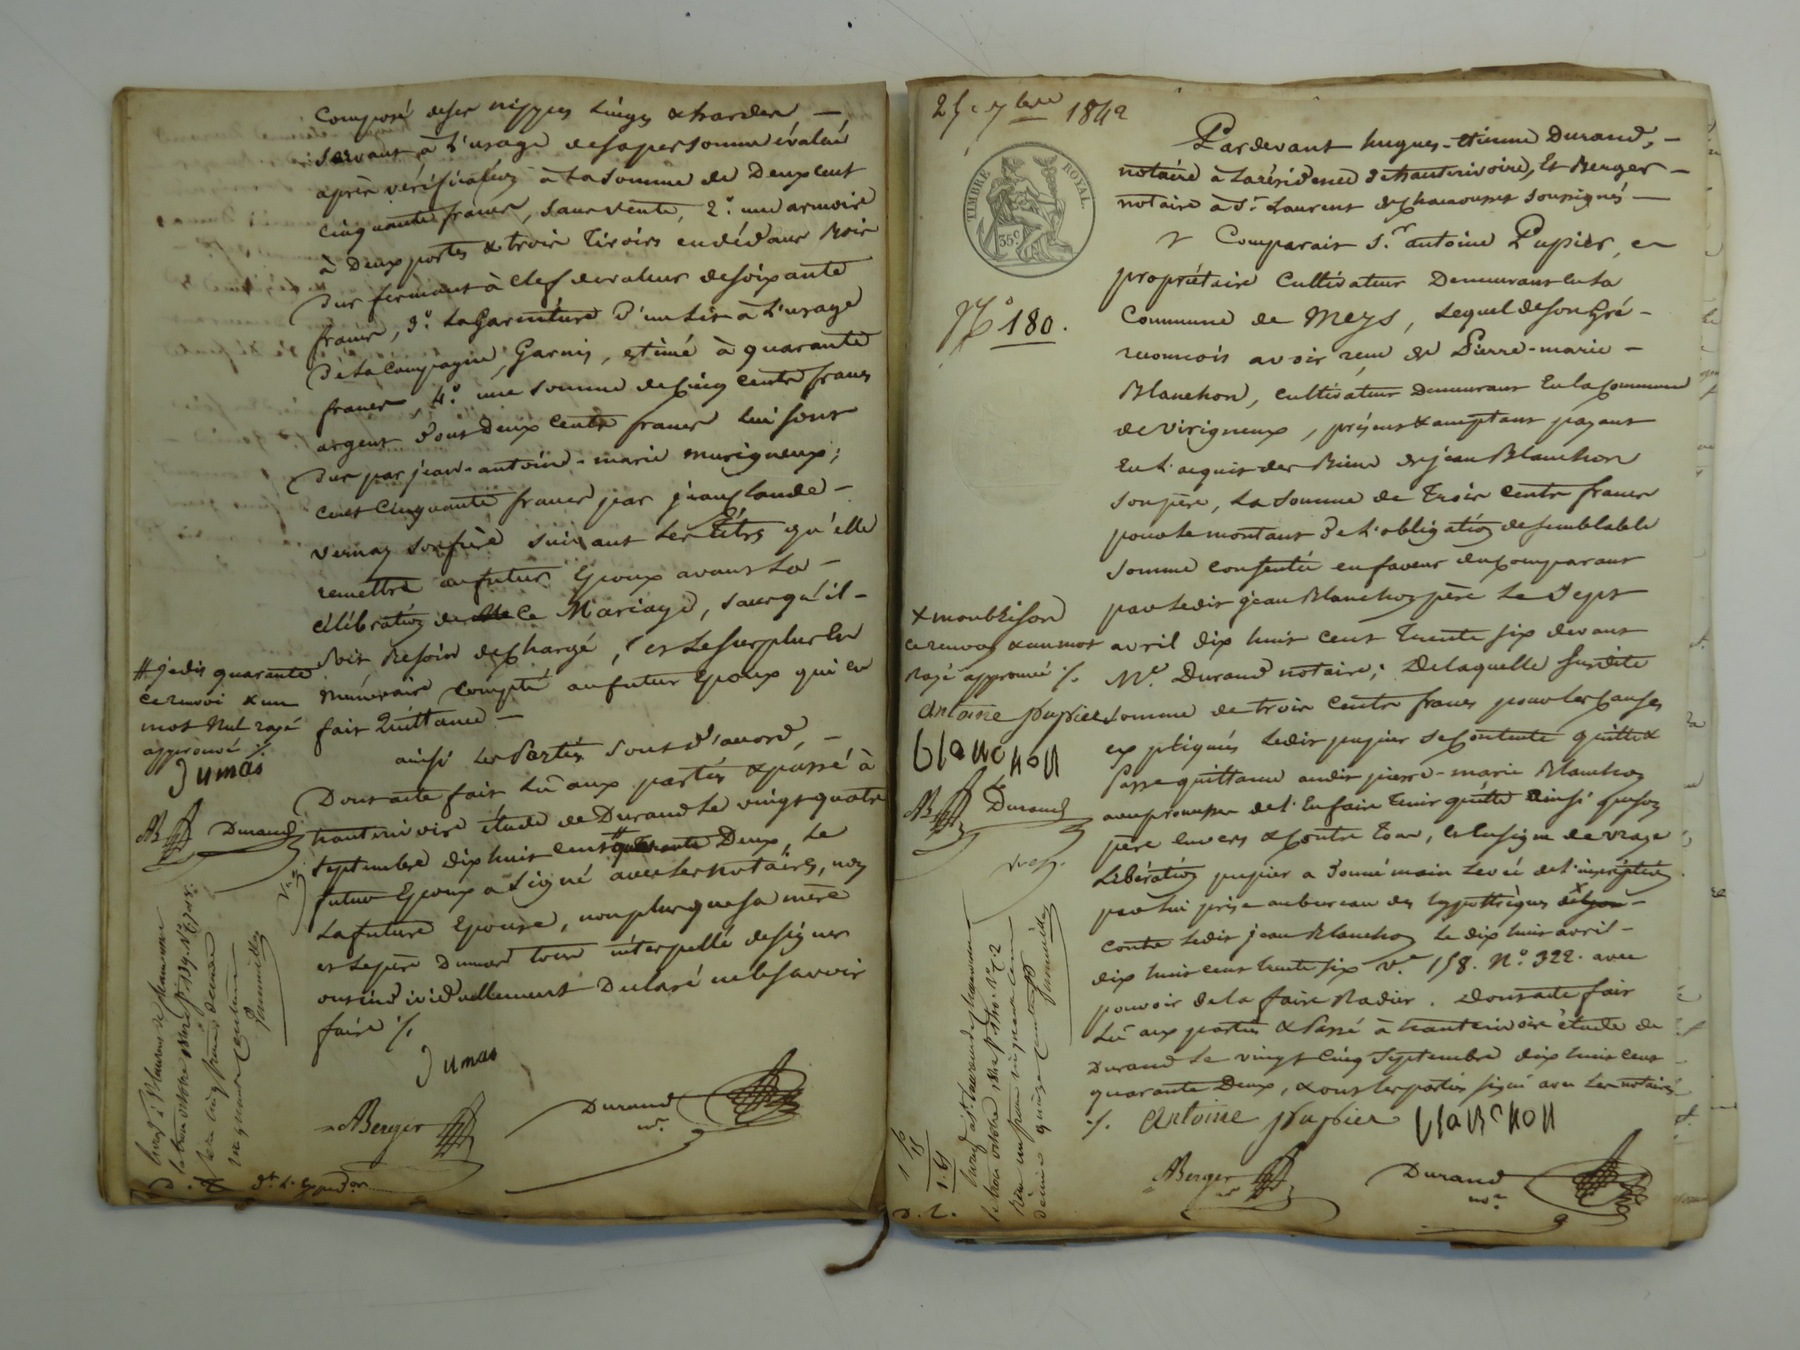 Composé de ses nippes Linges & hardes, —
servant à L'usage de sa personne évalué
après vérification à la somme de Deux cent
cinquante francs, sans vente, 2.° une armoire
à Deux portes & trois Tiroirs en dédans Bois
Dur fermant à clef de valeur de soixante
francs, 3.° La Garniture D'un Lit à L'usage
De la Campagne, Garnis, estimé à quarante
francs, 4.° une somme de Cinq Cents francs
argent dont Deux Cents francs Lui sont
Dus par jean-antoine-marie murigneux;
cent Cinquante francs par jean Claude —
vernay son frère suivant Les Titres qu'elle
remettra au futur Epoux avant La —
célébration de ce Mariage, sans qu'il —
soit Besoin de Charge, et Le surplus En
numéraire compté au futur Epoux qui en
fait Quittance —
ainsi Les Parties sont D'accord, —
Dont acte fait Lû aux parties & passé à
hauterivoire étude de Durand Le vingt quatre
septembre dix huit cent # quarante Deux, Le
futur Epoux a signé avec Les notaires, non
La future Epouse, non plus que sa mère
et Le père Dumas tous interpellé de signer
ont individuellement Déclaré ne le savoir
faire ./.
Dumas
ABerger
Durand
nre.
# je dis quarante
ce renvoi & un
mot nul rayé
approuvé ./.
Dumas
AB
Durand
25. 7bre 1842
TIMBRE ROYAL.
35c
N.° 180.
Pardevant hugues-étienne Durand, —
notaire à La résidence d'hauterivoire, Et Berger —
notaire à St. Laurent de Chamousset soussignés —
Comparait S.r antoine Pupier,
propriétaire Cultivateur Demeurant en La
Commune de Meys, Lequel de son Gré —
reconnoit avoir reçu de Pierre-marie —
Blanchon, cultivateur Demeurant En la Commune
de virigneux, présent & acceptant payant
En L'acquit des Biens de jean Blanchon
son père, La somme de Trois Cents francs
pour Le montant De L'obligation de semblable
somme consentie en faveur du Comparant
par Ledit jean Blanchon père Le Sept
avril dix huit cent Trente six devant
M.e Durand notaire; De laquelle susdite
somme de trois Cents francs pour Les Causes
expliqués Ledit pupier se Contente quitte &
Passe quittance audit pierre-marie Blanchon
avec promesse de L'En faire Tenir quitte ainsi que son
père Envers & Contre Tous, et En signe de vraye
Libération pupier a Donné main Levée de L'inscription
par Lui prise au bureau des hypothèques
contre Ledit jean Blanchon Le dix huit avril —
dix huit cent trente six v.e 158. N.° 322. avec
pouvoir de La faire Radier. Dont acte fait
Lû aux parties & Passé à hauterivoire étude de
Durand Le vingt cinq septembre dix huit cent
quarante Deux, & ont Les parties signé avec Les notaires
./. Antoine pupier Blanchon
ABerger
Durand
nre.
x montbrison
ce renvoy & un mot
rayé approuvé ./.
Antoine pupier
Blanchon
AB
Durand